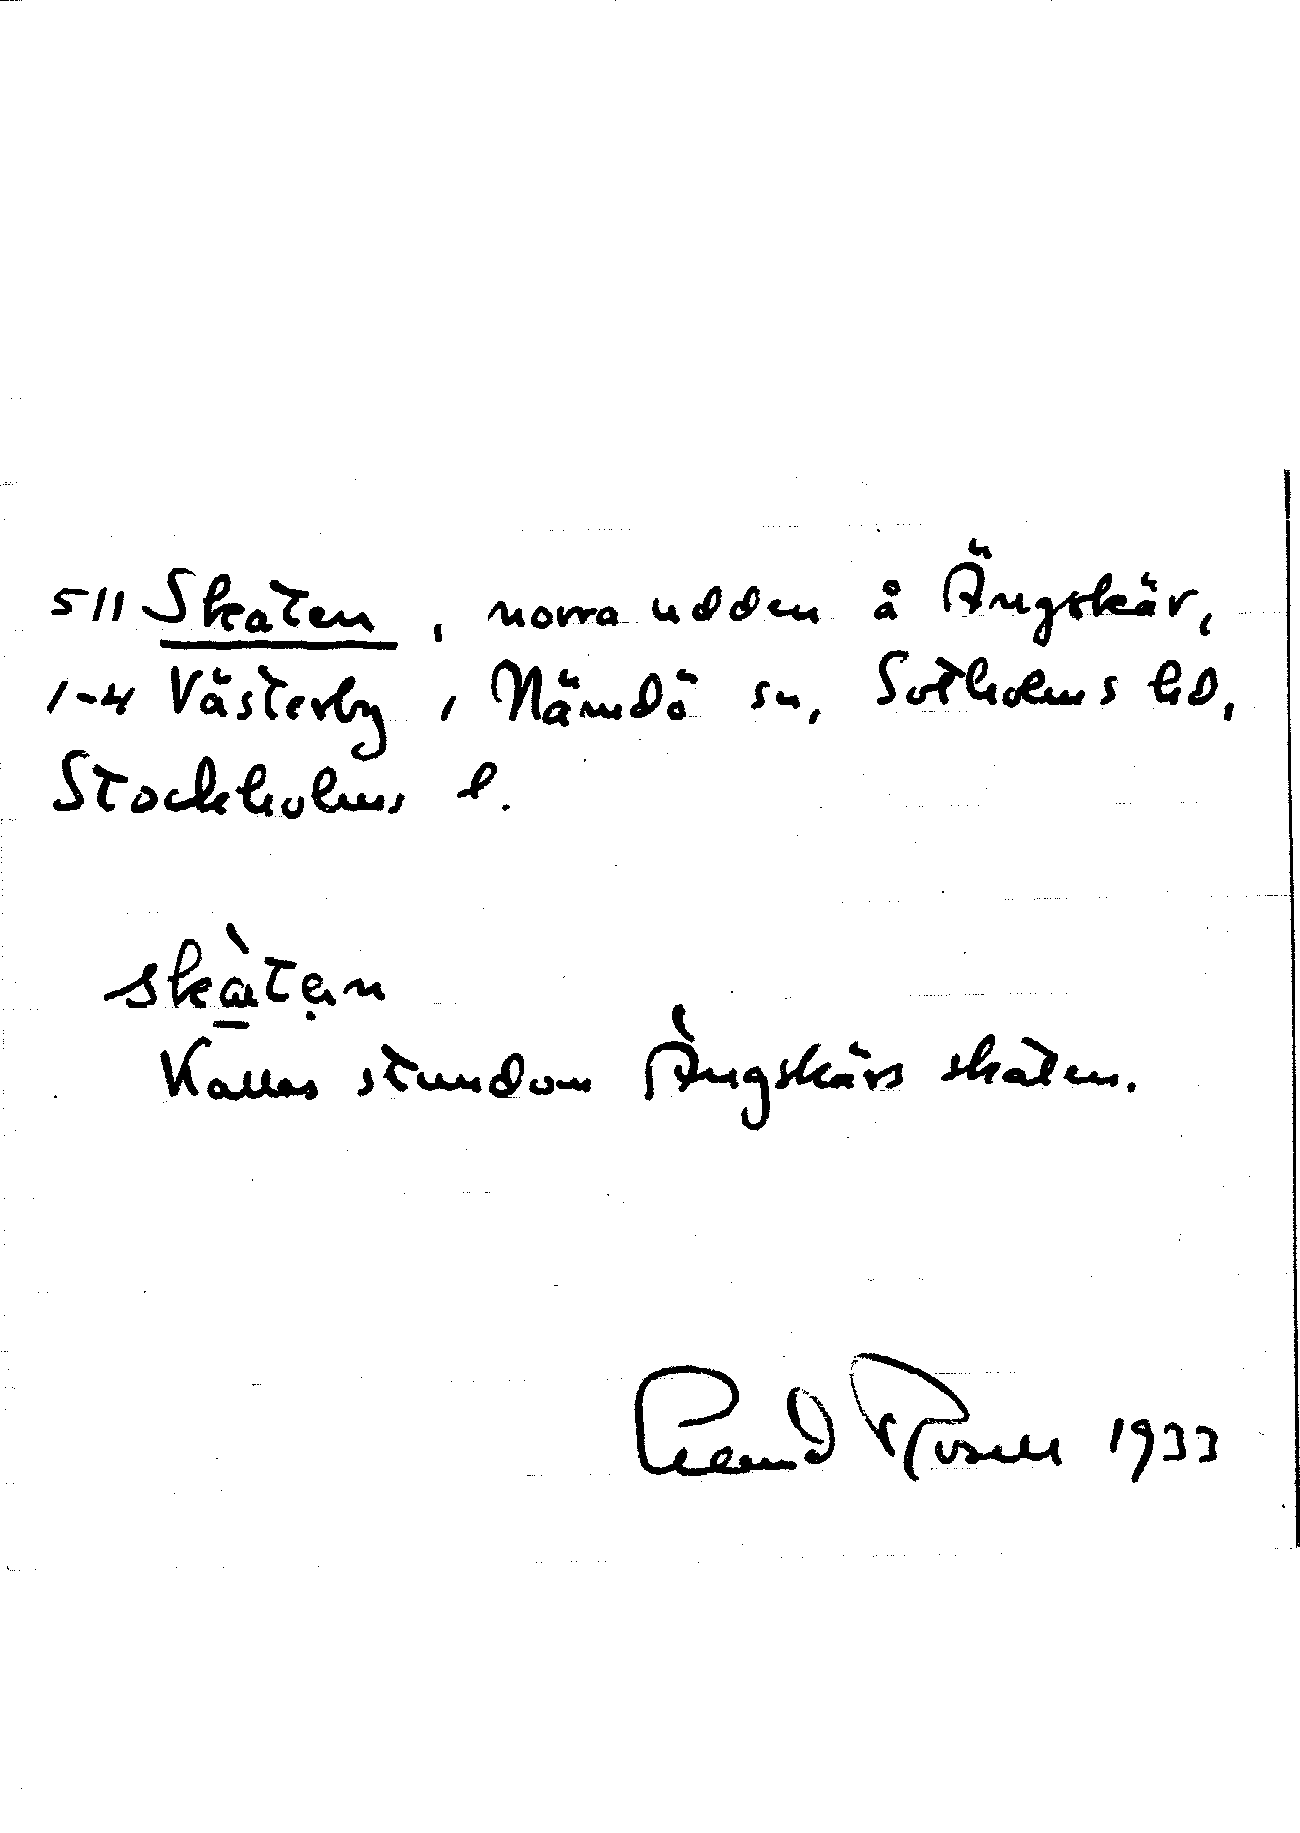 511 Skaten, norra udden å Ängskär,
1-4 Västerby, Nämdö sn, Sotholms hd,
Stockholms l.
skàtẹn
Kallas stundom Ängskärs skaten.
Rosell 1933